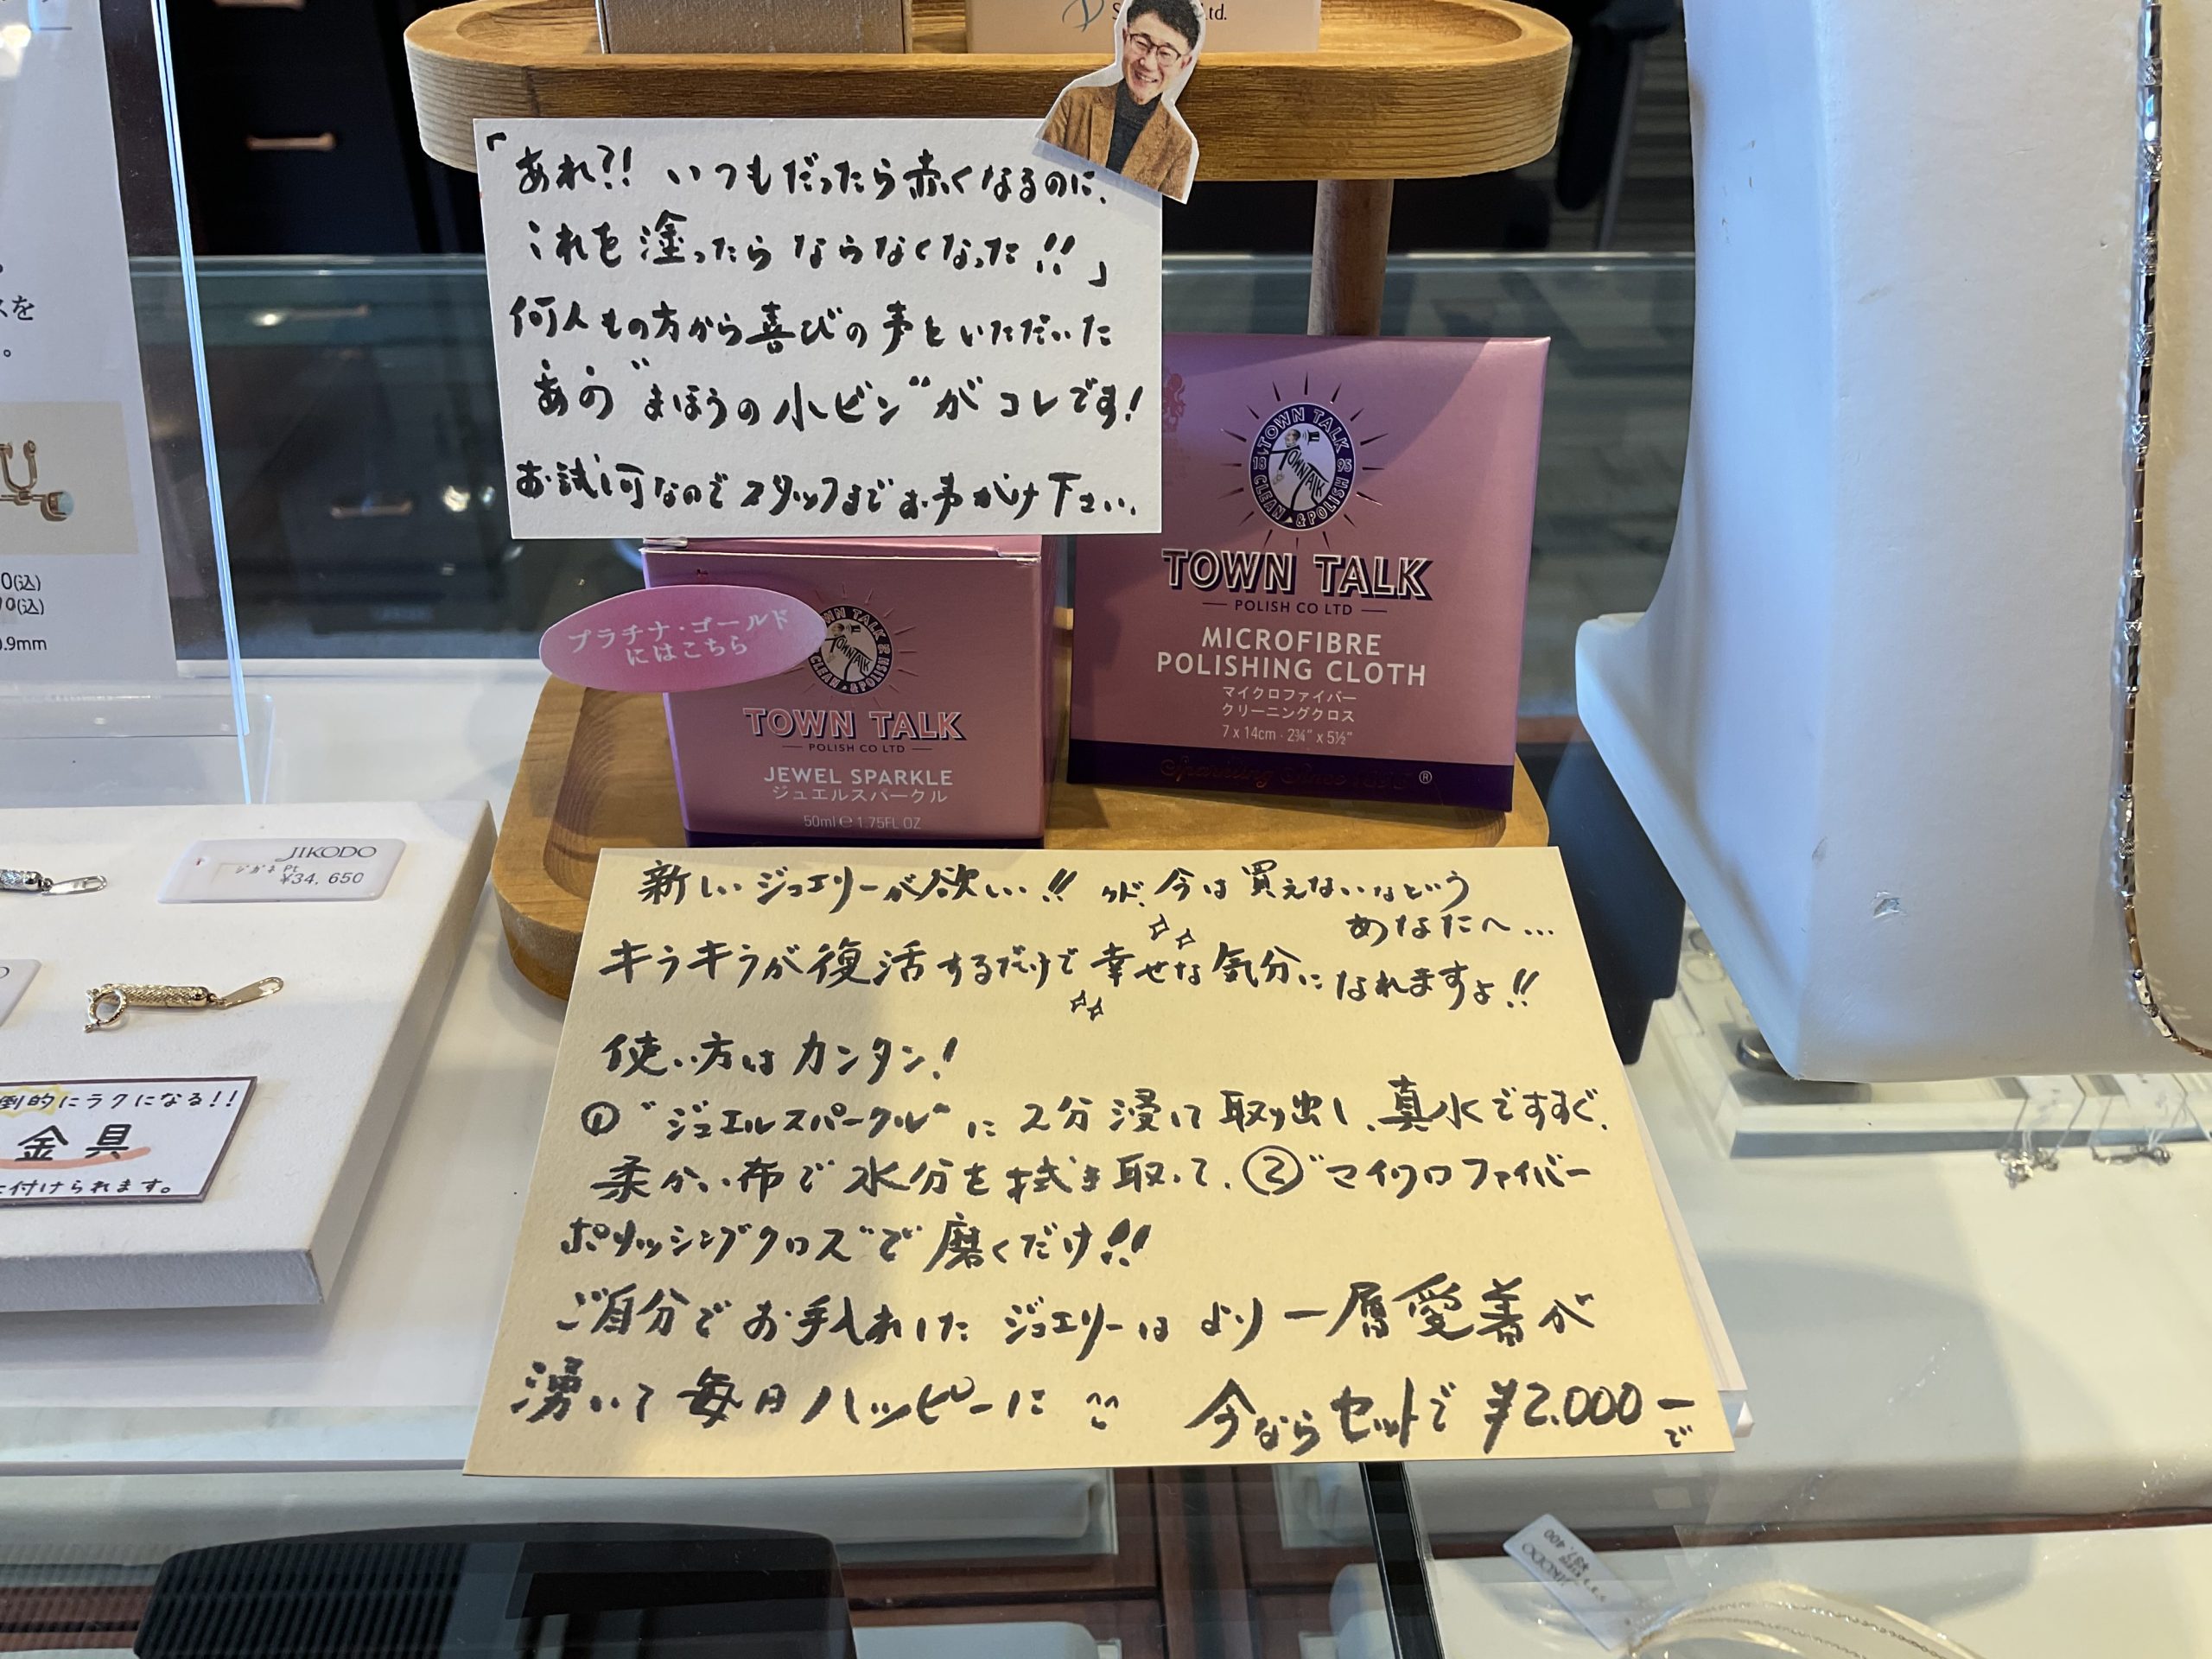 「あれ?! いつもだったら赤くなるのに、
これを塗ったらならなくなった!!」
何人もの方から喜びの声をいただいた
あの"まほうの小ビン"がコレです!
お試し可なのでスタッフまでお声がけ下さい。
TOWN TALK
CLEAN & POLISH
1895
TOWN TALK
POLISH CO LTD
MICROFIBRE
POLISHING CLOTH
マイクロファイバー
クリーニングクロス
7 x 14cm - 2¾" x 5½"
Sparkling Since 1895 ®
プラチナ・ゴールド
にはこちら
TOWN TALK
POLISH CO LTD
JEWEL SPARKLE
ジュエルスパークル
50ml e 1.75FL OZ
新しいジュエリーが欲しい!! けど、今は買えないなという
あなたへ…
キラキラが復活するだけで幸せな気分になれますよ!!
使い方はカンタン!
①"ジュエルスパークル"に2分浸けて取り出し、真水ですすぐ、
柔かい布で水分を拭き取って、②"マイクロファイバー
ポリッシングクロス"で磨くだけ!!
ご自分でお手入れしたジュエリーはより一層愛着が
湧いて毎日ハッピーに
今ならセットで ¥2,000-
で
JIKODO
¥34,650
倒的にラクになる!!
金具
付けられます。
スを
0(込)
0(込)
0.9mm
JIKODO